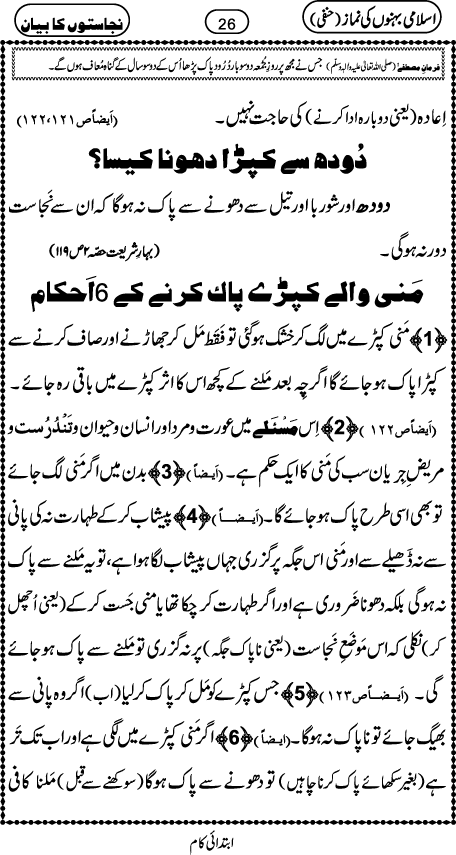 اسلامی بہنوں کی نماز (حنفی)
26
نجاستوں کا بیان
فرمانِ مصطفےٰ (صلی اللہ تعالیٰ علیہ واٰلہٖ وسلّم) جس نے مجھ پر روزِ جُمُعہ دو سو بار دُرُود پاک پڑھا اُس کے دو سو سال کے گناہ مُعاف ہوں گے۔
اِعادہ (یعنی دوبارہ ادا کرنے) کی حاجت نہیں۔ (اَیضاً ص ۱۲۲،۱۲۱)
دُودھ سے کپڑا دھونا کیسا؟
دودھ اور شوربا اور تیل سے دھونے سے پاک نہ ہوگا کہ ان سے نَجاست
دور نہ ہوگی۔ (بہارِ شریعت حصّہ ۲ ص ۱۱۹)
مَنی والے کپڑے پاک کرنے کے 6 اَحکام
﴿1﴾ مَنی کپڑے میں لگ کر خشک ہوگئی تو فَقَط مَل کر جھاڑنے اور صاف کرنے سے
کپڑا پاک ہو جائے گا اگرچِہ بعد مَلنے کے کچھ اس کا اثر کپڑے میں باقی رہ جائے۔
(اَیضاً ص ۱۲۲) ﴿2﴾ اِس مَسْئَلے میں عورت و مرد اور انسان و حیوان و تَنْدُرُست و
مریضِ جریان سب کی مَنی کا ایک حکم ہے۔ (اَیضاً) ﴿3﴾ بدن میں اگر مَنی لگ جائے
تو بھی اسی طرح پاک ہو جائے گا۔ (اَیضاً) ﴿4﴾ پیشاب کر کے طہارت نہ کی پانی
سے نہ ڈَھیلے سے اور مَنی اس جگہ پر گزری جہاں پیشاب لگا ہوا ہے، تو یہ مَلنے سے پاک
نہ ہوگی بلکہ دھونا ضَروری ہے اور اگر طہارت کر چکا تھا یا منی جَست کر کے (یعنی اُچھل
کر) نکلی کہ اس مَوضَعِ نَجاست (یعنی ناپاک جگہ) پر نہ گزری تو مَلنے سے پاک ہو جائے
گی۔ (اَیضاً ص ۱۲۳) ﴿5﴾ جس کپڑے کو مَل کر پاک کر لیا (اب) اگر وہ پانی سے
بھیگ جائے تو ناپاک نہ ہوگا۔ (ایضاً) ﴿6﴾ اگر مَنی کپڑے میں لگی ہے اور اب تک تَر
ہے (بغیر سکھائے پاک کرنا چاہیں) تو دھونے سے پاک ہوگا (سوکھنے سے قبل) مَلنا کافی
ابتدائی کام